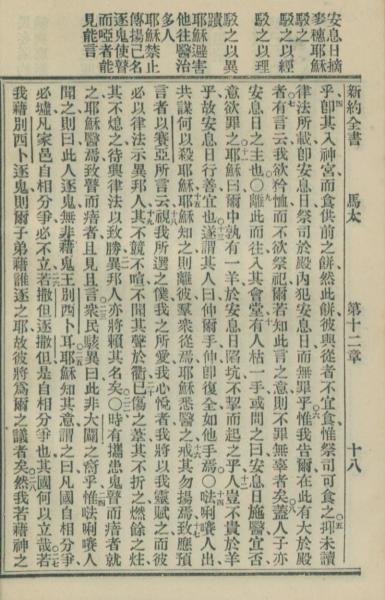 新約全書 馬太 第十二章 十八
安息日摘
麥穗耶穌
駁之
駁之以經
駁之以理
駁之以異
蹟
耶穌避害
他往醫治
多人
耶穌禁止
傳揚己名
逐鬼使瞽
而啞者能
見能言
乎卽其入神宮而食供前之餠然此餠彼與從者不宜食惟祭司可食之抑未讀
律法所載卽安息日祭司於殿內犯安息日而無罪乎惟我告爾在此有大於殿
者有言云我欲矜恤而不欲祭祀爾若知此言之意則不罪無辜者矣蓋人子亦
安息日之主也〇離此而往入其會堂有人枯一手或問之曰安息日施醫宜否
意欲罪之耶穌曰爾中孰有一羊於安息日陷坑不挈而起之乎人豈不貴於羊
乎故安息日行善宜也遂謂其人曰伸爾手伸卽復全如他手焉〇𠵽唎賽人出
共謀何以殺耶穌耶穌知之則離彼羣衆從焉耶穌悉醫之戒其勿揚焉致應預
言者以賽亞所言云視我所選之僕我之所愛我心悅者我將以我靈賦之而彼
必以律法示異邦人其不競不喧不聞其聲於衢已傷之葦其不折之燃餘之炷
其不熄之待興律法以致勝異邦人亦將賴其名矣〇時有攜患鬼瞽而瘖者就
之耶穌醫焉致瞽而瘖者且見且言衆民駭異曰此非大闢之裔乎惟𠵽唎賽人
聞之則曰此人逐鬼無非藉鬼王別西卜耳耶穌知其意謂之曰凡國自相分爭
必墟凡家邑自相分爭必不立若撒但逐撒但是自相分爭也其國何以立哉若
我藉別西卜逐鬼則爾子弟藉誰逐之耶故彼將爲爾之議者矣然我若藉神之